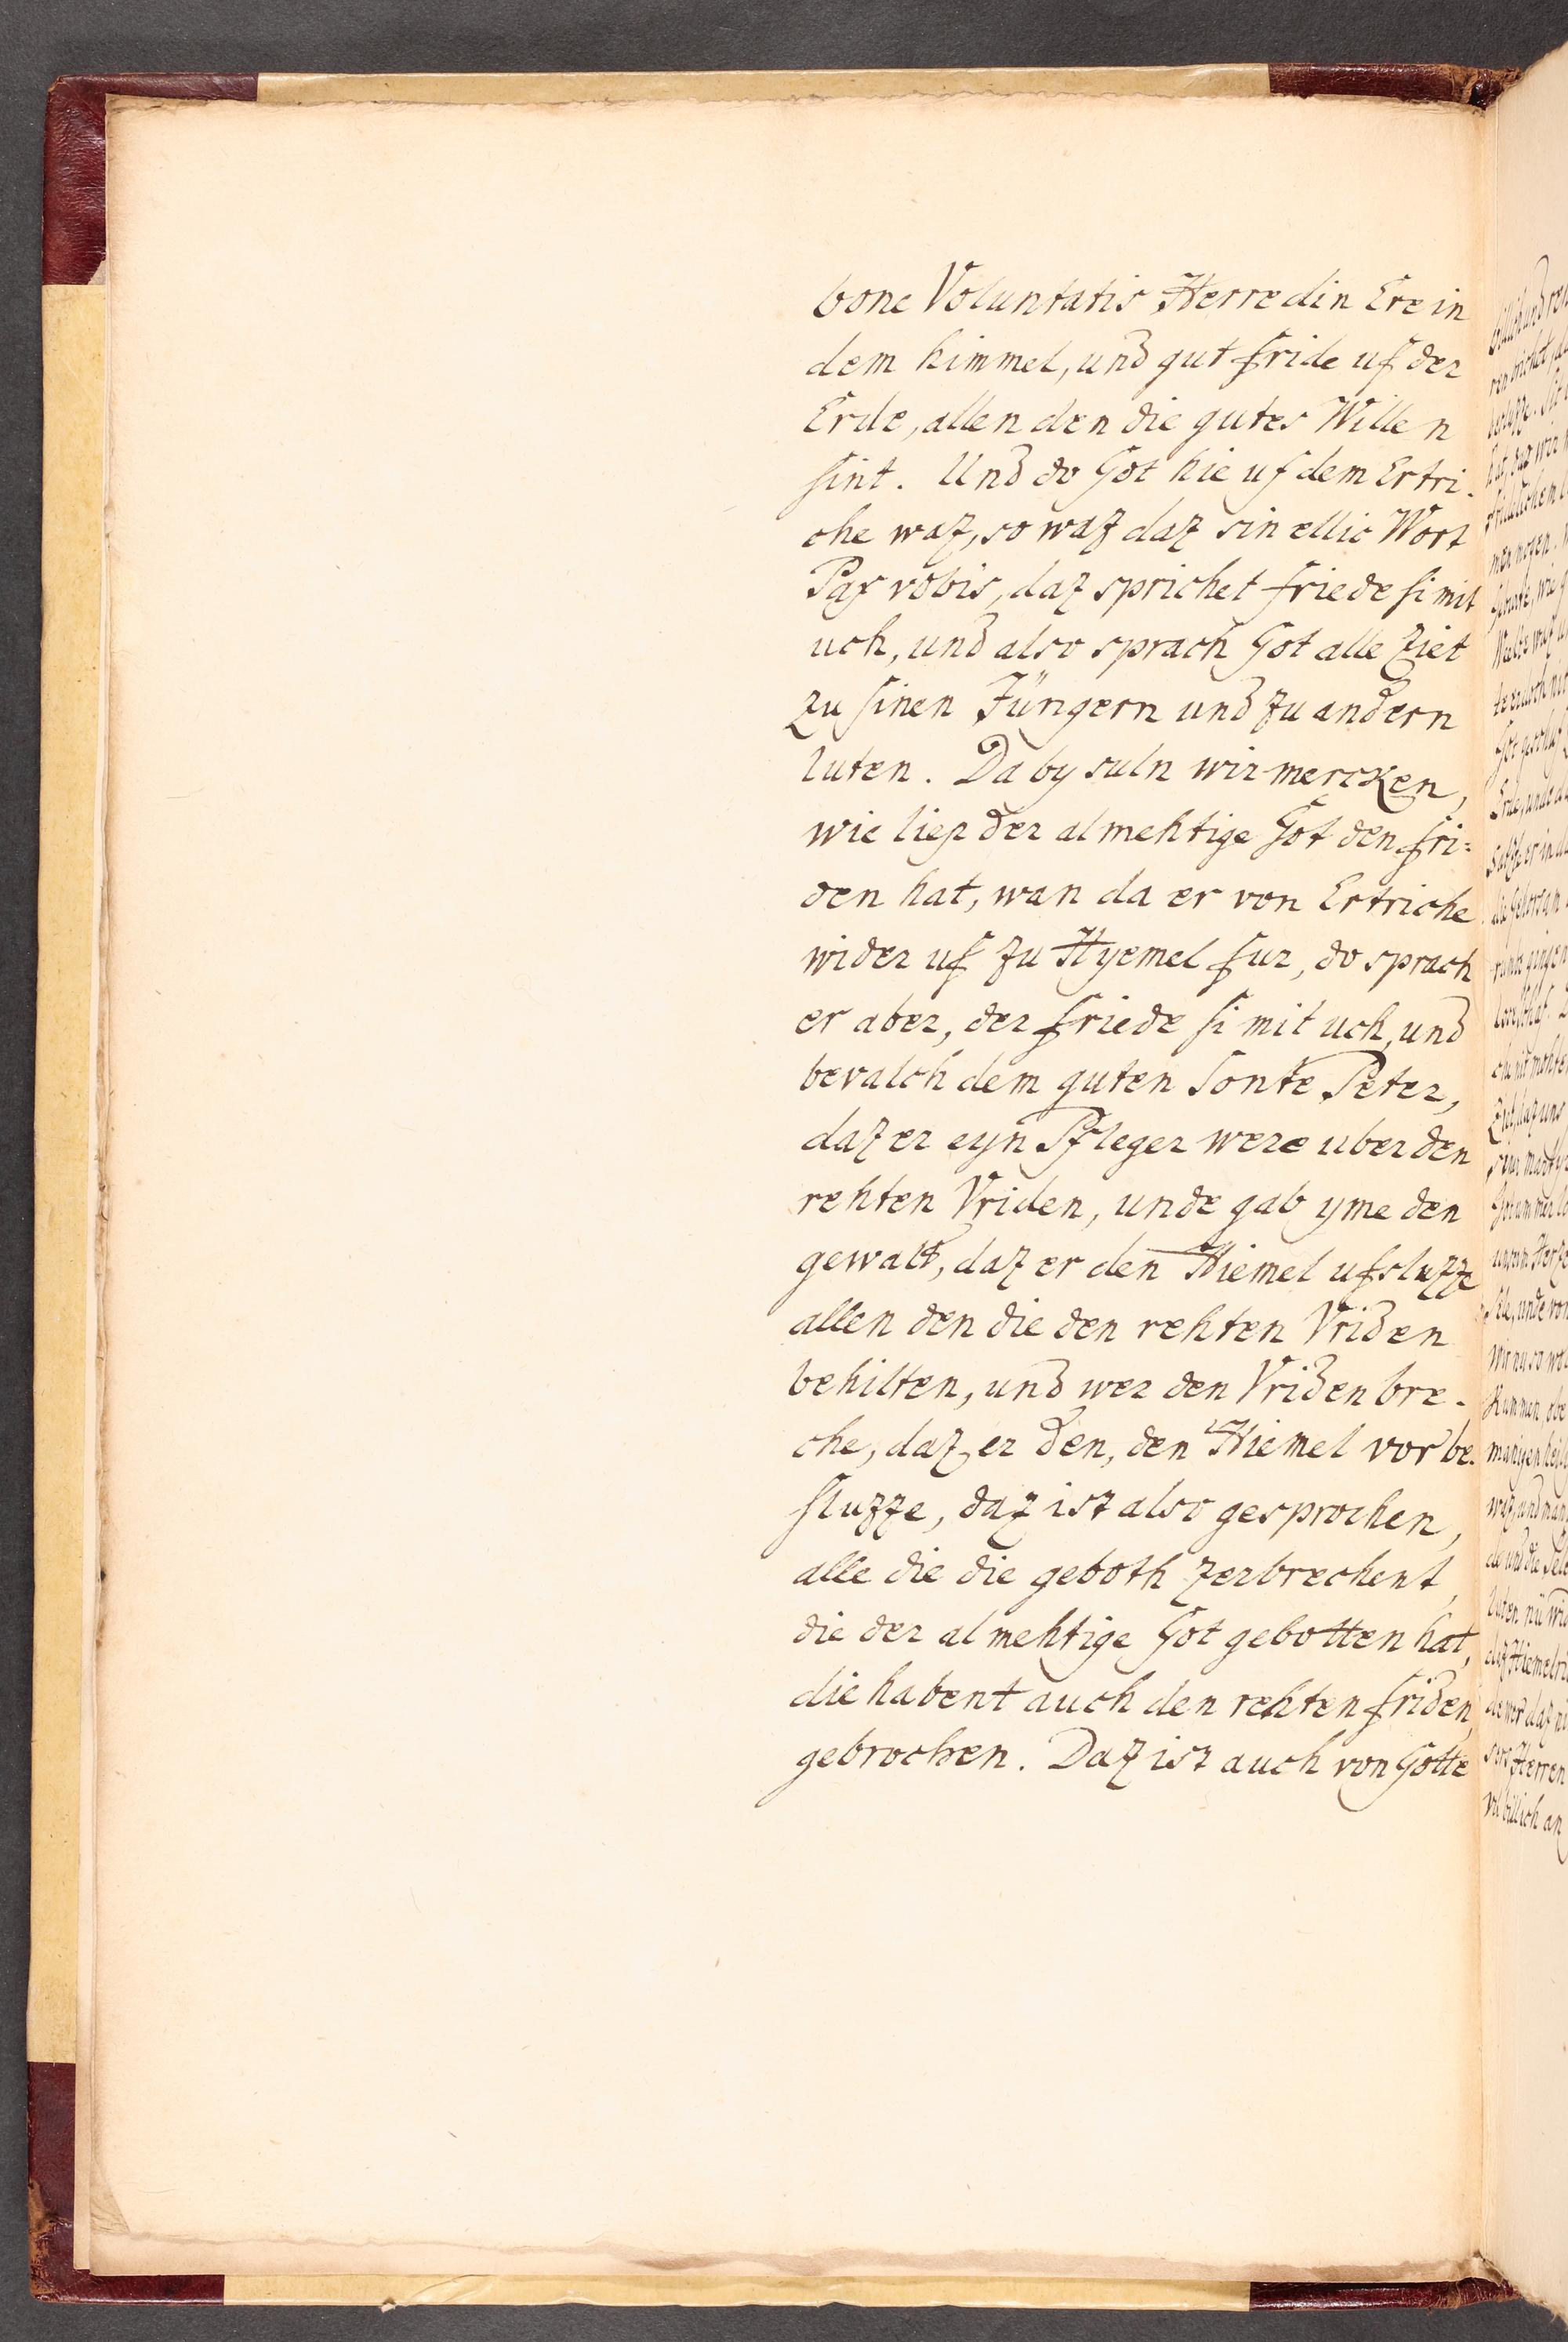 bone Voluntatis Herre din Ere in
dem himmel, und gut fride uf der
Erde, allen den die gutes Willen
sint. Und do Got hie uf dem Ertri-
che waz, so waz daz sin ellic Wort
Pax vobis, daz sprichet friede si mit
uch, und also sprach Got alle Ziet
zu sinen Jüngern und zu andern
luten. Da by suln wir mercken,
wie liep der almehtige Got den fri=
den hat, wan da er von Ertriche
wider uf zu Hyemel fur, do sprach
er aber, der friede si mit uch, und
bevalch dem guten Sonte Peter,
daz er eyn Pfleger were uber den
rehten Vriden, unde gab yme den
gewalt, daz er den Hiemel ufsluzze
allen den die den rehten Vriden
behilten, und wer den Vriden bre-
che, daz er den, den Hiemel vor be-
sluzze, daz ist also gesprochen,
alle die die geboth zerbrechent,
die der almehtige Got gebotten hat,
die habent auch den rehten friden,
gebrochen. Daz ist auch von Gotte